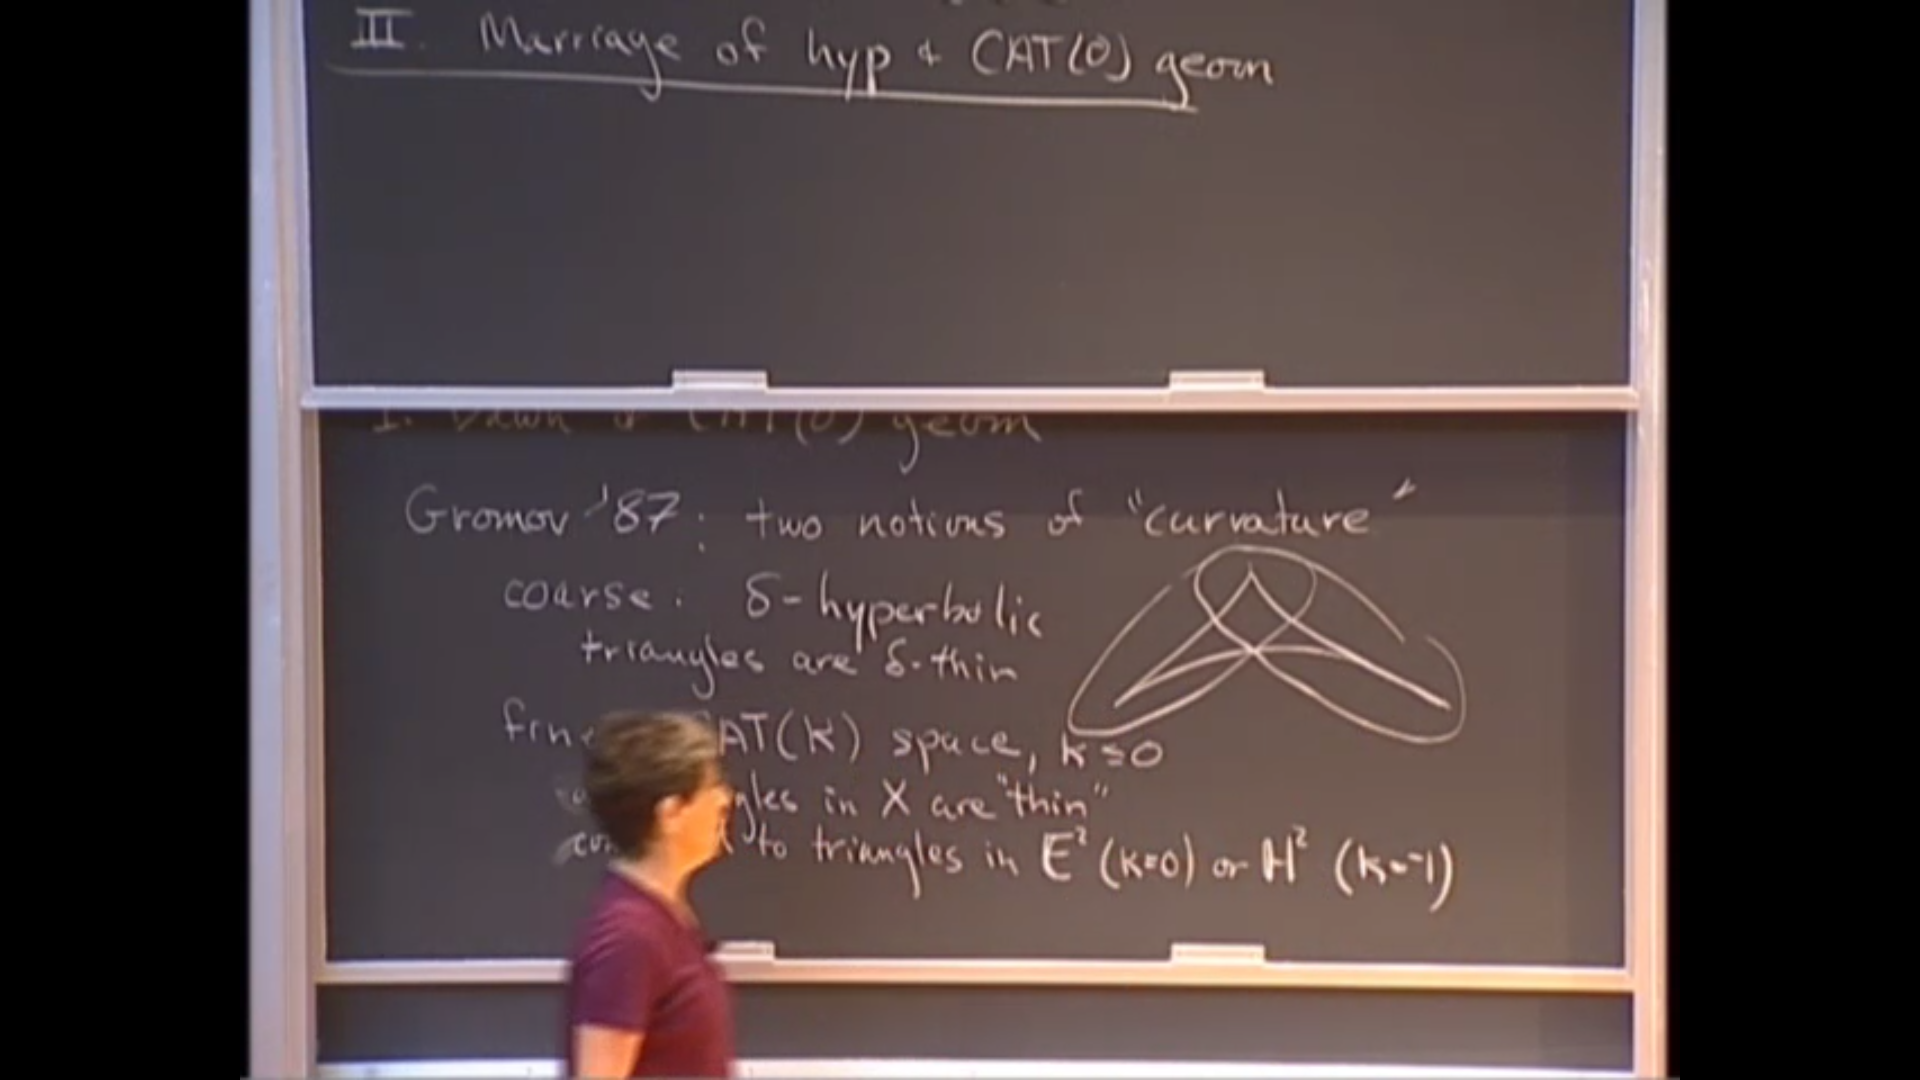 III. Marriage of hyp & CAT(0) geom
I. Dawn of CAT(0) geom
Gromov '87: two notions of "curvature"
coarse: δ-hyperbolic
triangles are δ-thin
CAT(K) space, K ≤ 0
in X are "thin"
to triangles in E² (K=0) or H² (K=-1)